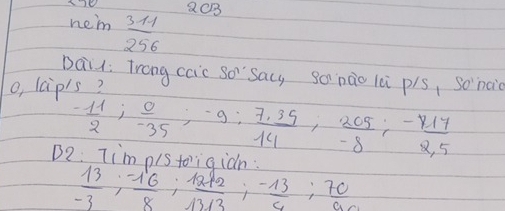 203
ném 311/256
Bài 1: Trong các số sau, số nào là p/s, số nào
0, là p/s?
-11/2 ; 0/-35 ; -9 ; 7,35/14 ; 205/-8 ; /2,5
B2: Tìm p/s tối giản:
13/-3 ; -16/8 ; 1212/1313 ; -13/ ; 70/